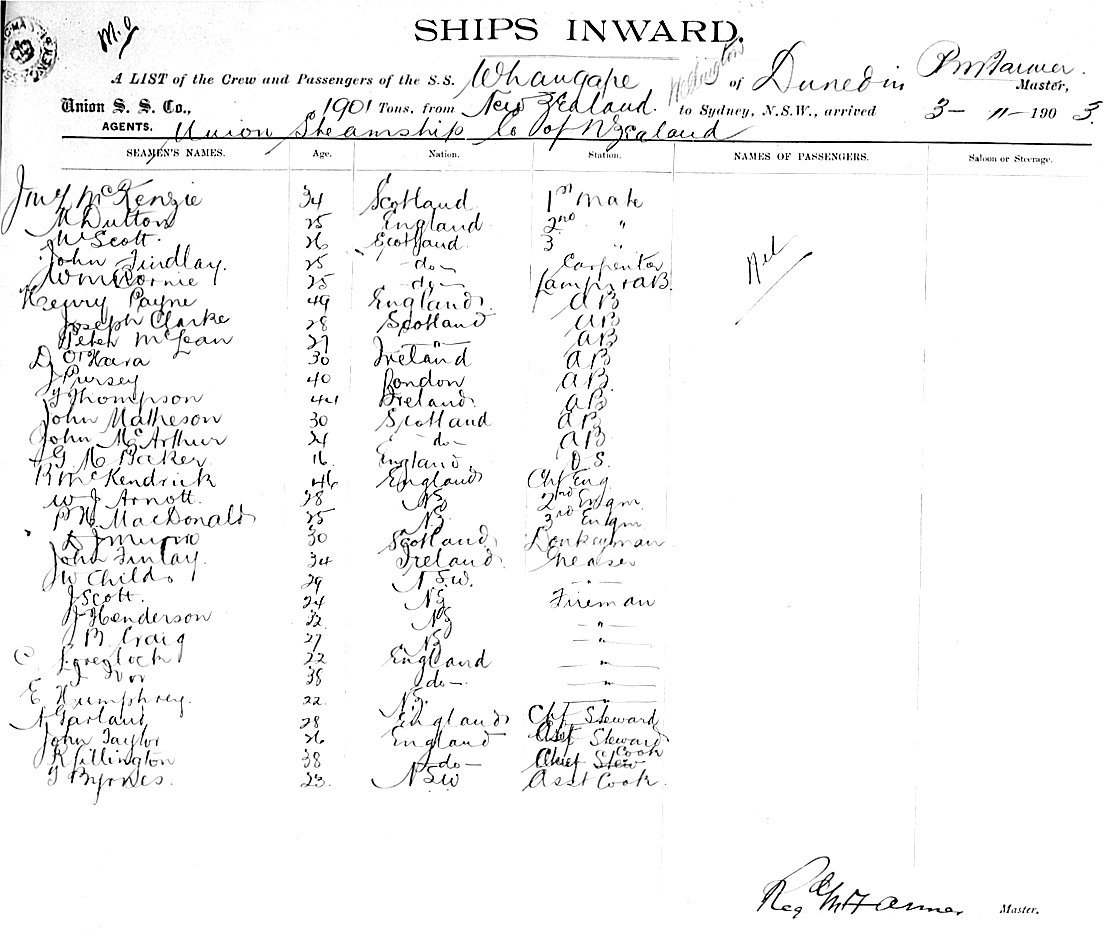 M.J
SHIPS INWARD.
A LIST of the Crew and Passengers of the S.S. Whangape of Dunedin Master,
Union S. S. Co., 1901 Tons, from New Zealand to Sydney, N.S.W., arrived 3- 11- 1903.
AGENTS. Union Steamship Co of N Zealand
SEAMEN'S NAMES. Age. Nation. Station. NAMES OF PASSENGERS. Saloon or Steerage.
McKenzie 34 Scotland 1st Mate
M Dutton 25 England 2nd "
Scott. 26 Scotland 3 "
John Findlay. 25 -do- Carpenter
25 -do- Lamps & AB.
Henry Payne 49 England AB
Joseph Clarke 28 Scotland AB
Peter McLean 27 -"- AB
D O'Hara 30 Ireland AB
J Pursey 40 London AB
T Thompson 44 Ireland AB
John Matheson 30 Scotland AB
John McArthur 21 -do- AB
G M Baker 16 England O.S.
R McKendrick 46 England Chf Eng
W J Arnott. 28 NZ 2nd Engr
P N MacDonald 25 NZ 3rd Engr
D J Munro 30 Scotland Donkeyman
John Finlay. 34 Ireland Greaser
J W Childs 29 N.S.W. -"-
J Scott. 24 NZ Fireman
J Henderson 32 NZ -"-
J B Craig 27 NZ -"-
C. 22 England -"-
J 38 -do- -"-
E Humphrey. 22 NZ. -"-
A Garland 28 England Chf Steward
John Taylor 26 England Asst Steward
R Cillington 38 -do- Chief Stew Cook
T Byrnes. 23. NSW Asst Cook
Nil
Reg M Farmer Master.